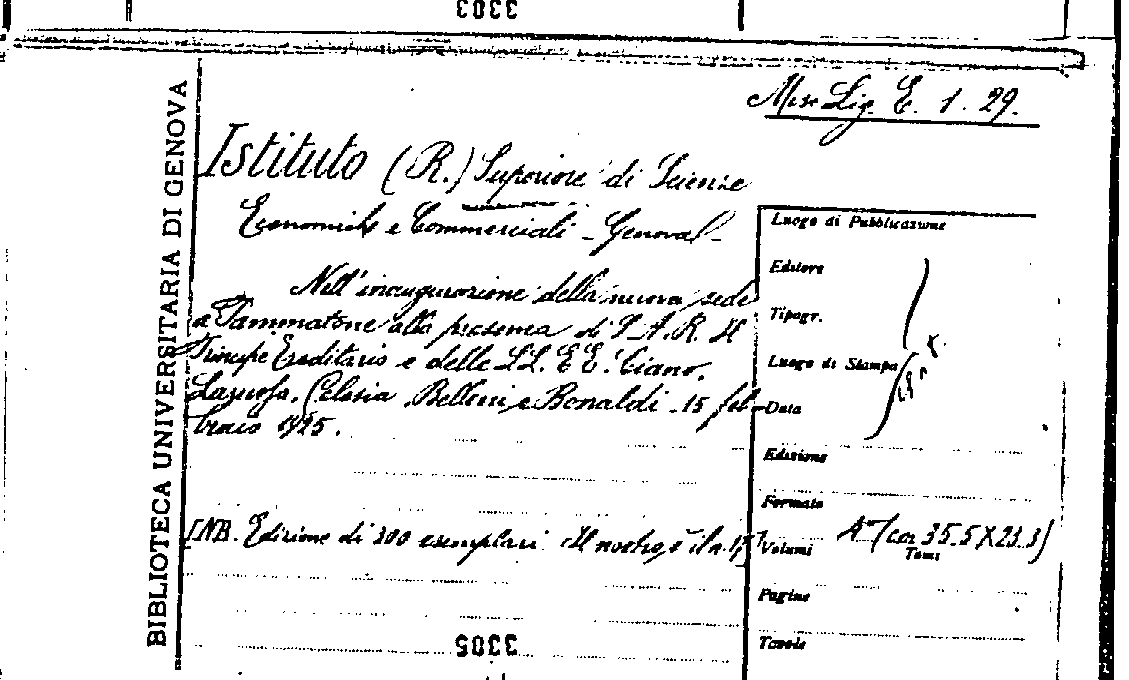 3303
BIBLIOTECA UNIVERSITARIA DI GENOVA
Misc Lig. E. 1. 29.
Istituto (R.) Superiore di Scienze
Economiche e Commerciali - Genova -
Nell'inaugurazione della nuova sede
a Pammatone alla presenza di S. A. R. Il
Principe Ereditario e delle LL. EE. Ciano,
Celesia Belluzzi e Bonaldi - 15 feb-
braio 1925.
[NB. Edizione di 300 esemplari. Il nostro è il n.
Luogo di Pubblicazione
Editore
Tipogr.
Luogo di Stampa
Data
Edizione
Formato
Volumi 4° (cm 35.5 X 25.3)
Tomi
Pagine
Tavole
3305